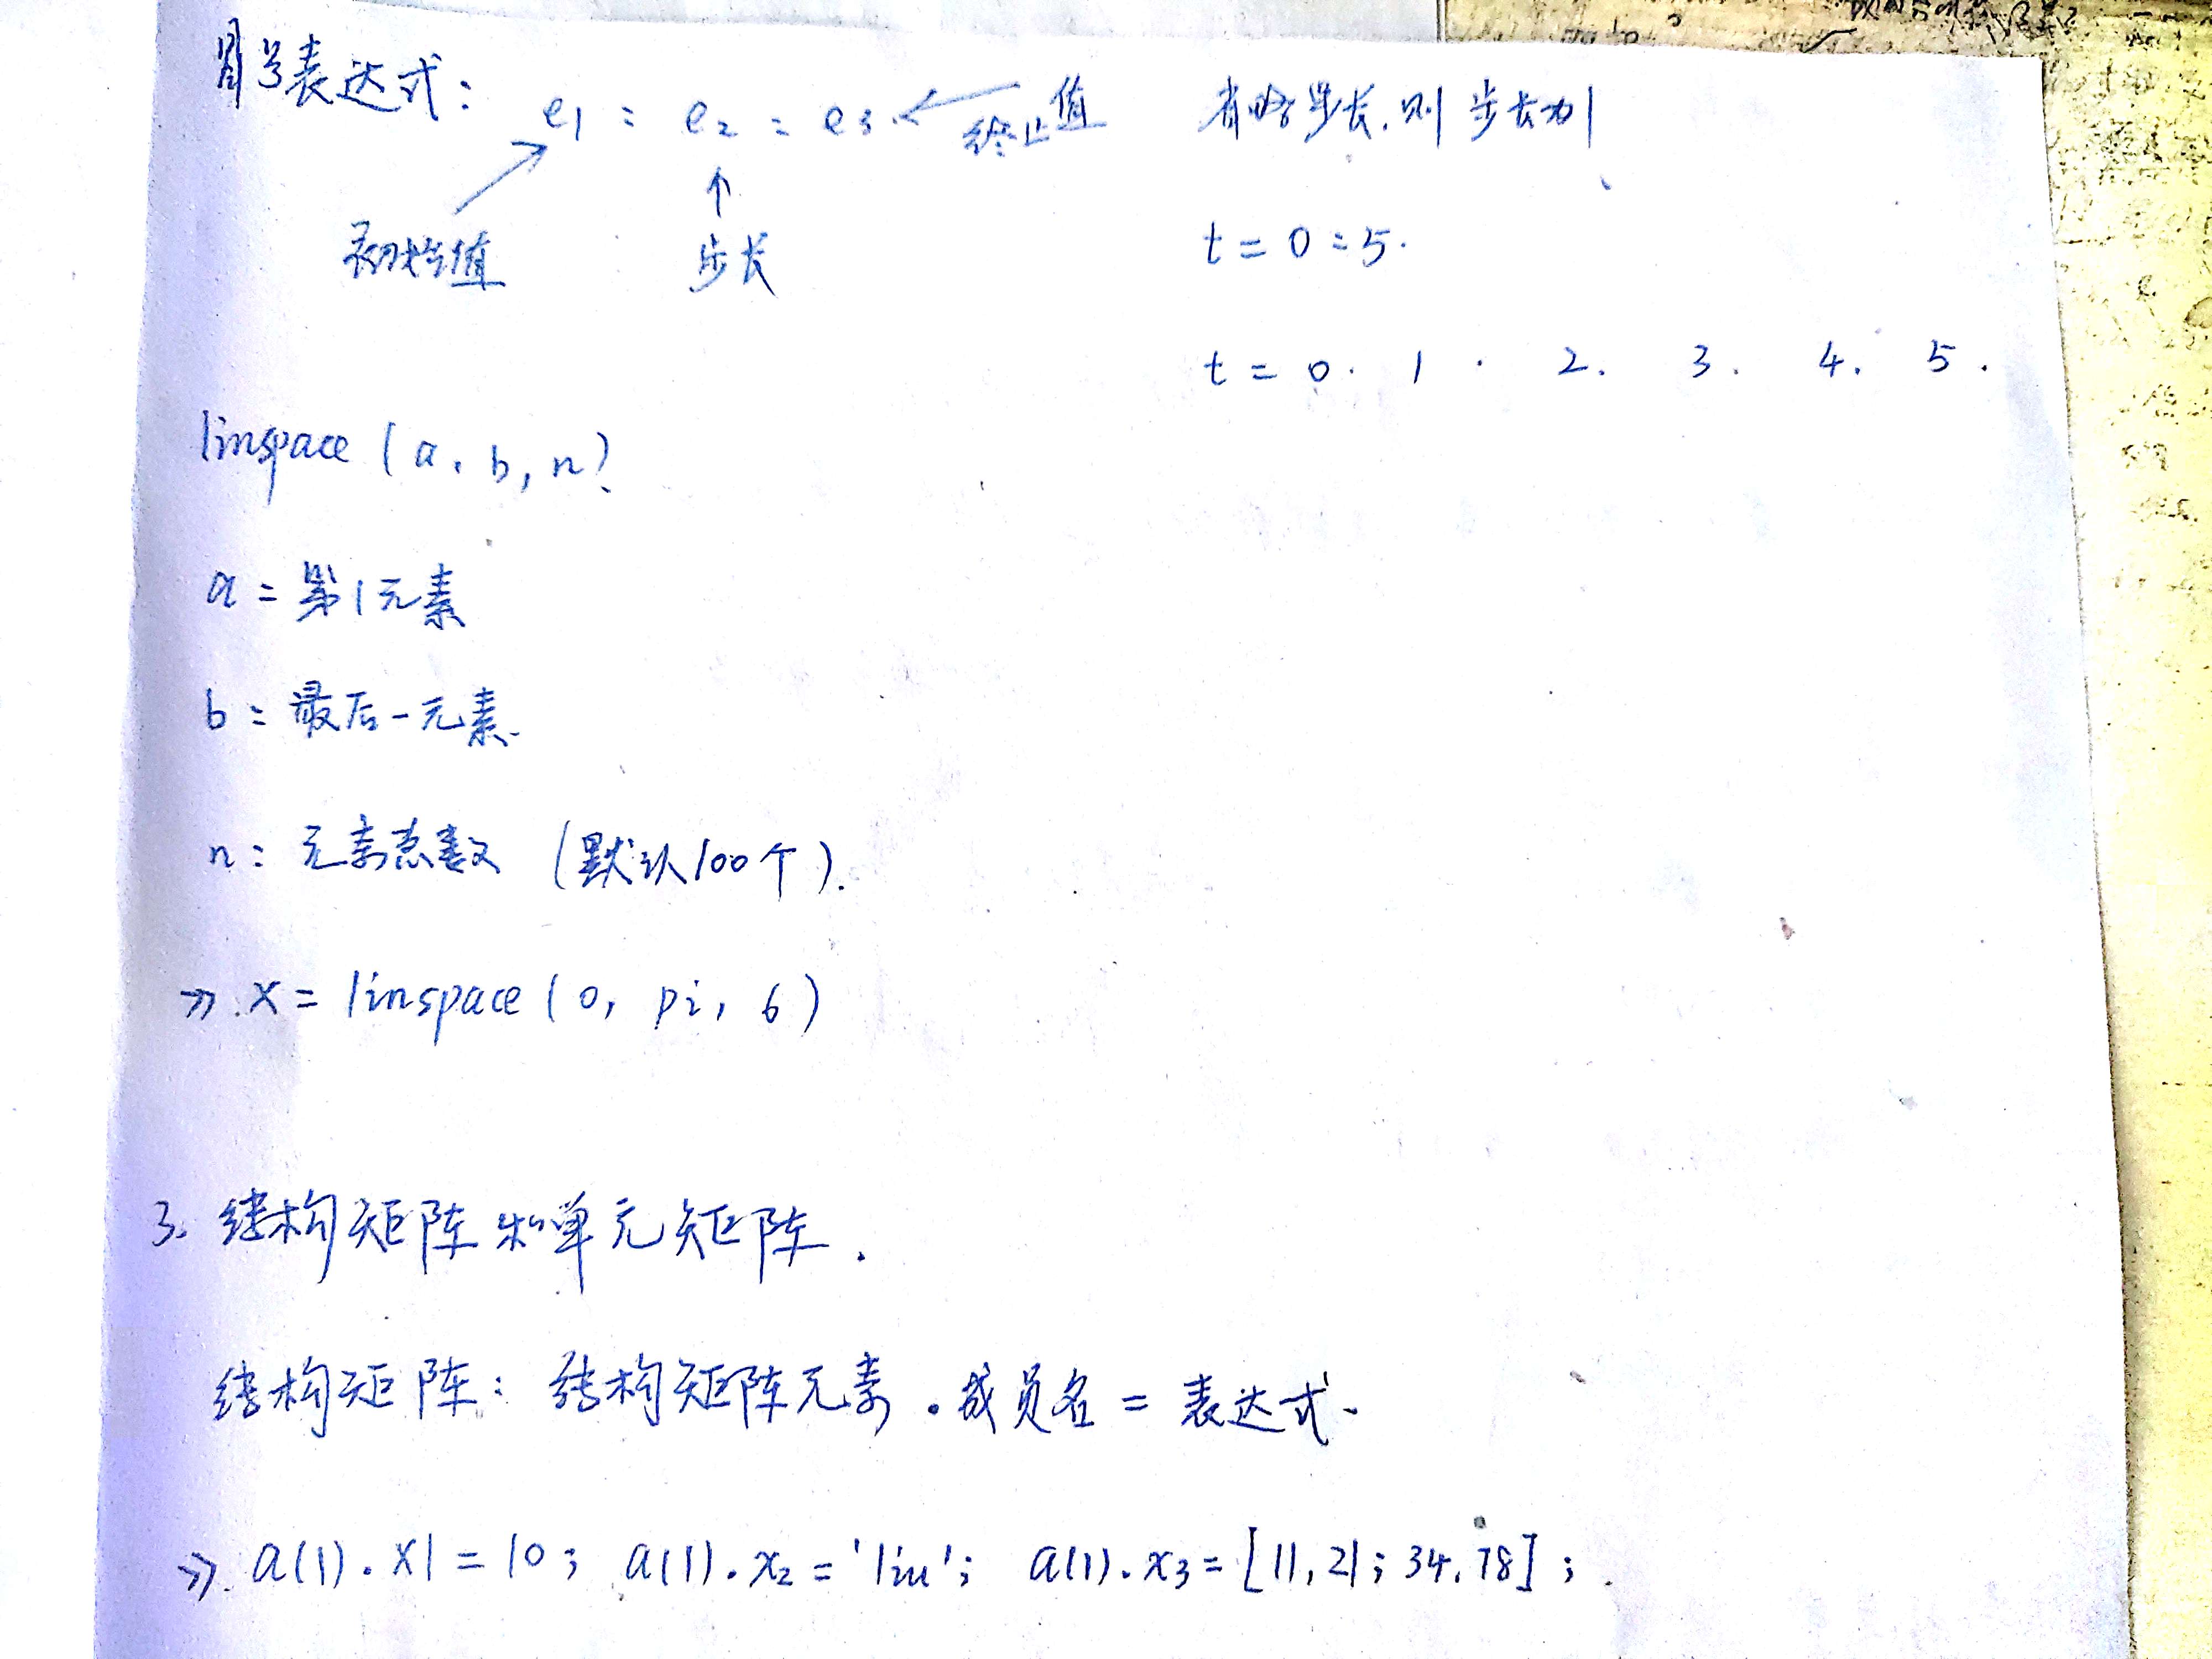 冒号表达式: e1 : e2 : e3 ← 终止值 省略步长,则步长为1
初始值 步长 t = 0:5.
t = 0. 1. 2. 3. 4. 5.
linspace (a, b, n).
a: 第1元素
b: 最后一元素.
n: 元素总数 (默认100个).
>> x = linspace (0, pi, 6)
3. 结构矩阵和单元矩阵.
结构矩阵: 结构矩阵元素.成员名 = 表达式.
>> a(1).x1=10; a(1).x2='liu'; a(1).x3=[11,21;34,78];